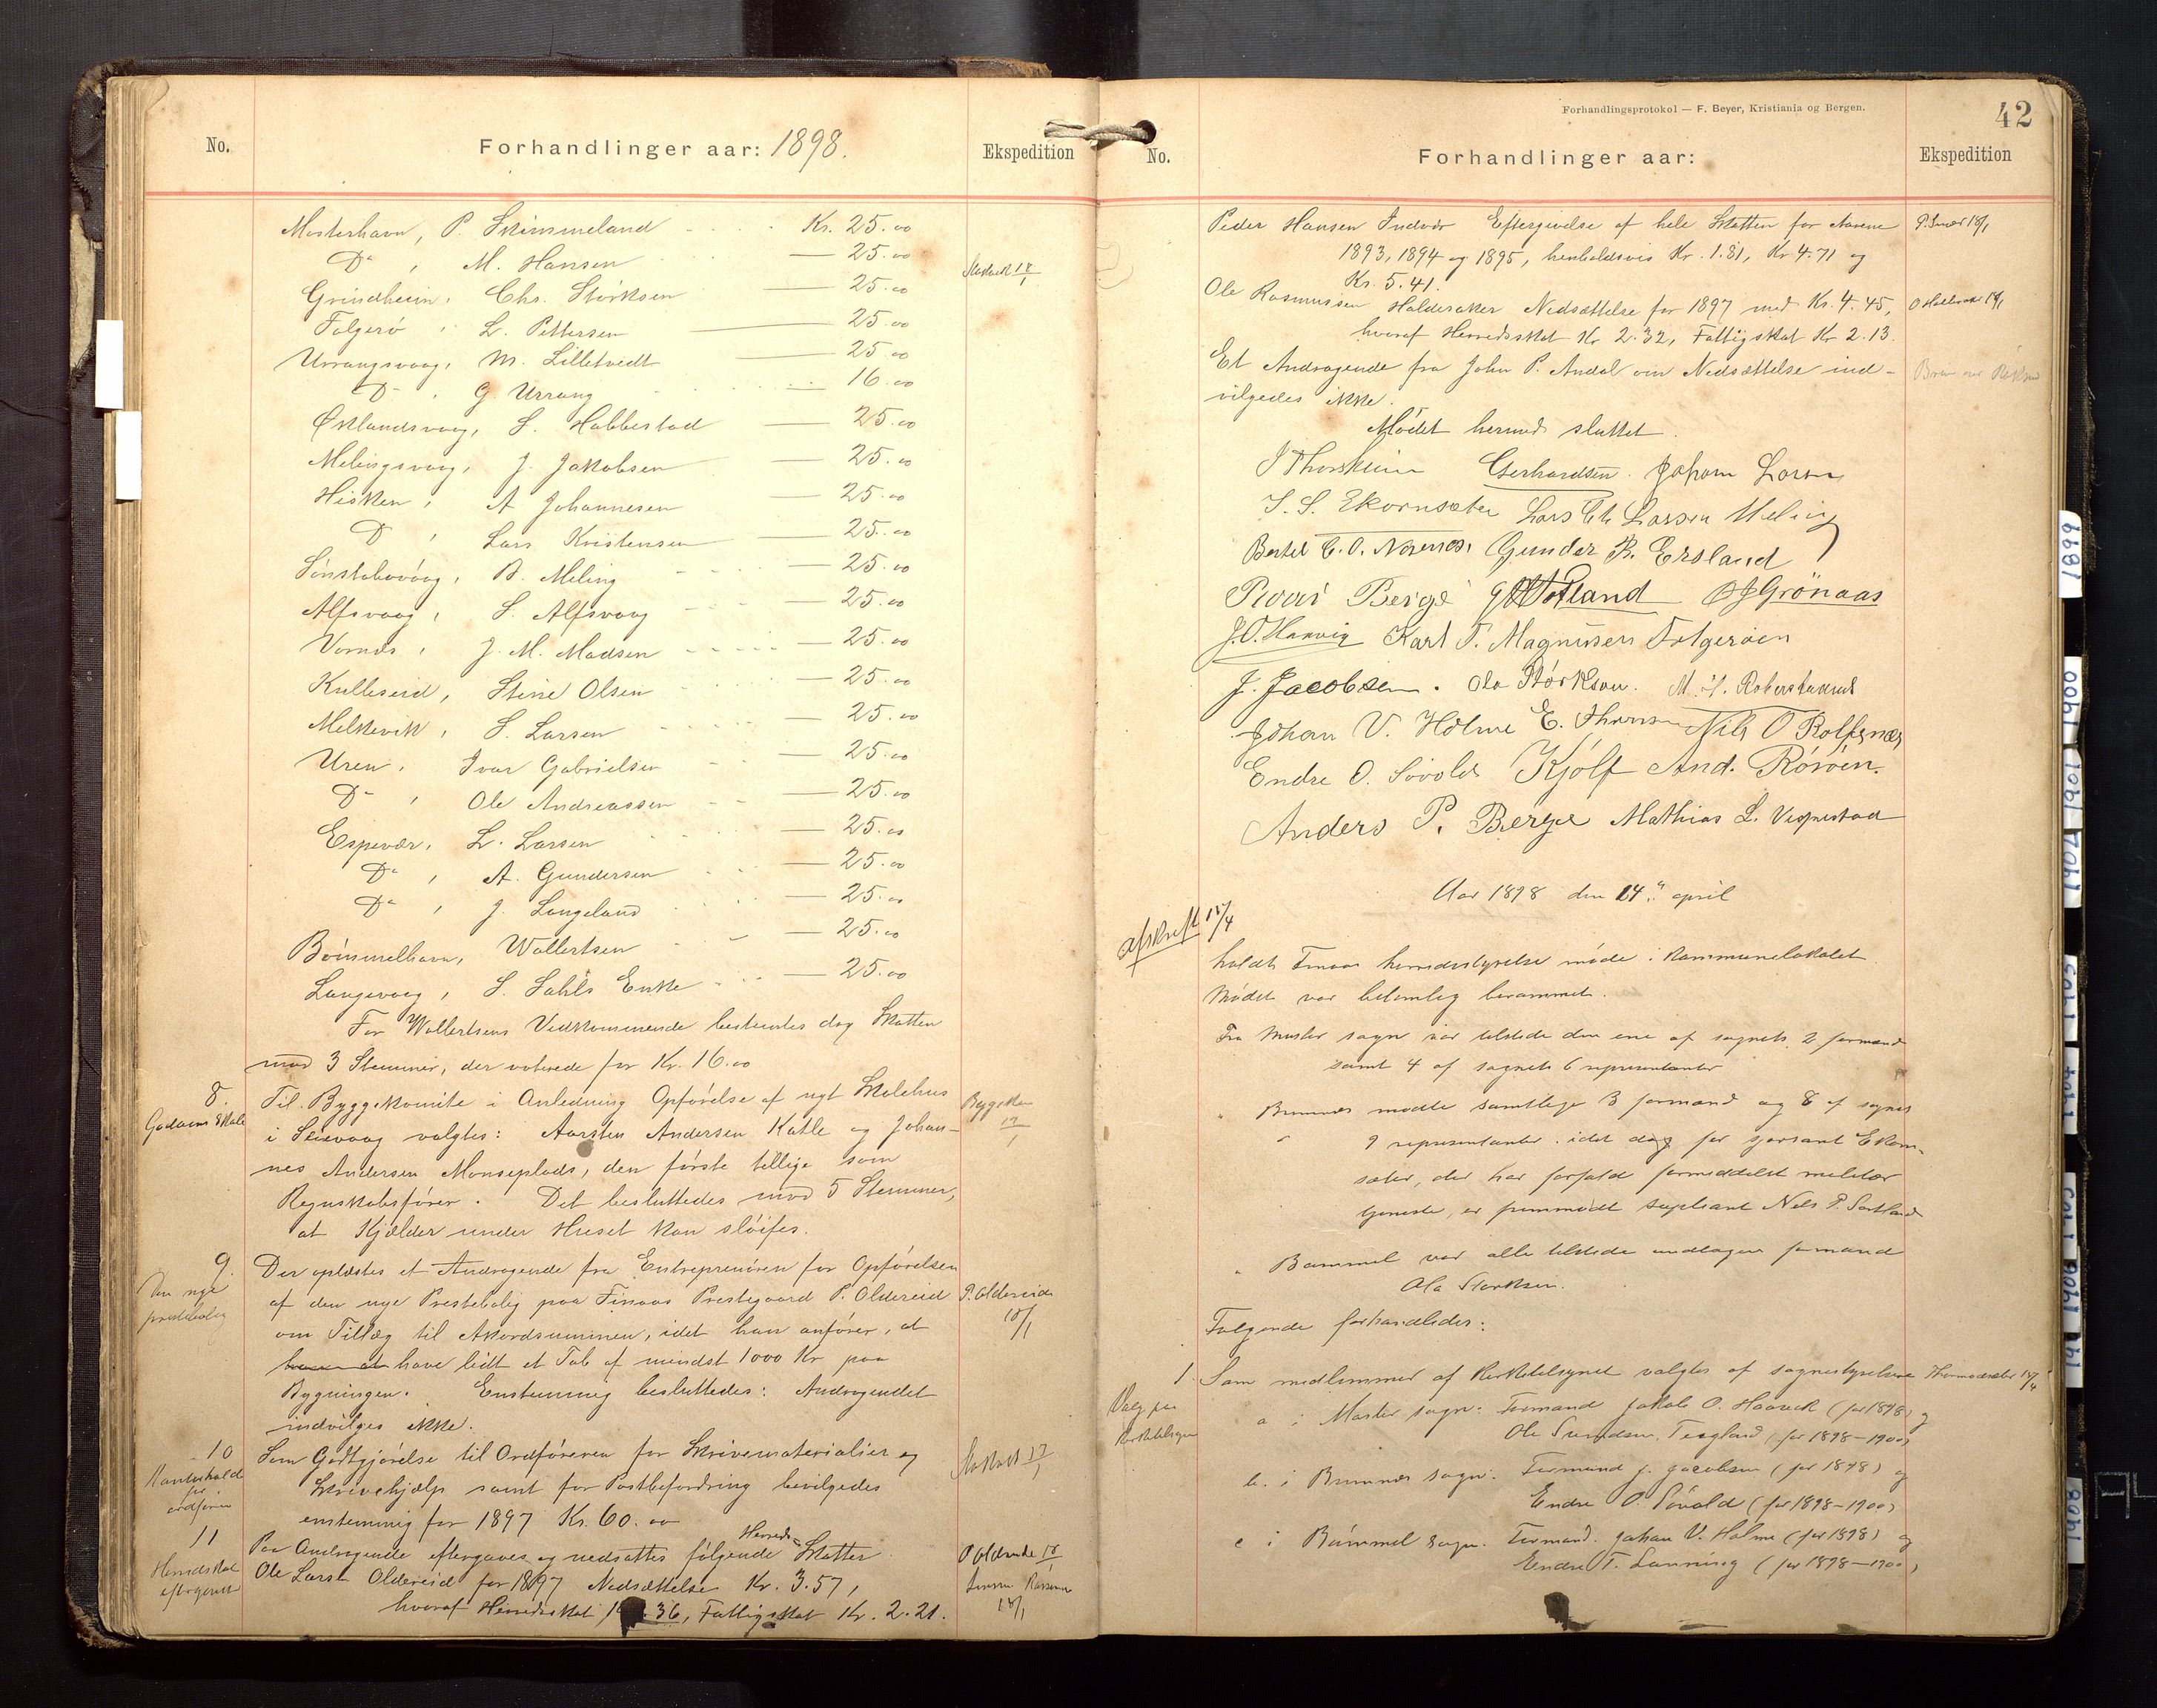 No.
Forhandlinger aar: 1898.
Ekspedition
Mosterhavn, P. Skimmeland Kr. 25.00
Do , M. Hansen — 25.00
Grindheim, Chr. Størksen — 25.00
Folgerø , L. Pettersen — 25.00
Urrangsvaag, M. Lilletvedt — 25.00
Do , G. Urrang — 16.00
Østlandsvaag, S. Habbestad — 25.00
Melingsvaag, J. Jakobsen — 25.00
Hisken, A Johannesen — 25.00
Do , Lars Kristensen — 25.00
Sønstabøvaag, B. Meling — 25.00
Alfsvaag, S. Alfsvaag — 25.00
Vornes, J. M. Madsen — 25.00
Kulleseid, Stine Olsen — 25.00
Melkevik, S. Larsen — 25.00
Uren, Ivar Gabrielsen — 25.00
Do , Ole Andreassen — 25.00
Espevær, L. Larsen — 25.00
Do , A. Gundersen — 25.00
Do , J. Langeland — 25.00
Bømmelhavn, Wallertsen — 25.00
Langevaag, S. Sahls Enke — 25.00
For Wallertsens Vedkommende bestemtes dog Skatten
mod 3 Stemmer, der voterede for Kr. 16.00
8. Til Byggekomite i Anledning Opførelse af nyt Skolehus
i Seievaag valgtes: Aarsten Andersen Katle og Johan-
nes Andersen Monseplads, den første tillige som
Regnskabsfører. Det besluttedes mod 5 Stemmer,
at Kjælder under Huset kan sløifes.
9. Der oplæstes et Andragende fra Entreprenøren for Opførelsen
Den nye
prestebolig
af den nye Prestebolig paa Finaas Prestegaard P. Oldereid
P. Oldereide 18/1
om Tillæg til Akordsummen, idet han anfører, at
have lidt et Tab af mindst 1000 Kr paa
Bygningen. Enstemmig besluttedes: Andragendet
indvilges ikke.
10 Som Godtgjørelse til Ordføreren for Skrivematerialier og
Kontorhold
for
ordføren
Skrivehjælp samt for Postbefordring bevilgedes
enstemmig for 1897 Kr. 60.00
11 Paa Andragende eftergaves og nedsattes følgende Herreds-Skatter
Herredsskat
eftergivet
Ole Larsen Oldereid for 1897 Nedsættelse Kr. 3.57,
hvoraf Herredsskat 1.36, Fattigskat Kr. 2.21.
Forhandlingsprotokol — F. Beyer, Kristiania og Bergen.
42
No.
Forhandlinger aar:
Ekspedition
Peder Hansen Indvær Eftergivelse af hele Skatten for Aarene
1893, 1894 og 1895, henholdsvis Kr. 1.81, Kr 4.71 og
Kr. 5.41.
Ole Rasmussen Halderaker Nedsættelse for 1897 med Kr. 4.45,
hvoraf Herredsskat Kr 2.32, Fattigskat Kr 2.13.
Et Andragende fra John P. Andal om Nedsættelse ind-
vilgedes ikke.
Mødet hermed sluttet.
Gerhardsen. Johan Larsen
S. S. Ekornsæter Lars Chr Larsen Meling
Bertel C. O. Nornes. Gunder R. Ersland
Berge O J Grönaas
J. O. Hanvig Karl T. Magnussen Folgerøen
J. Jacobsen. Ola Størksen.
Johan V. Holme E. Thorsen Nils O Rolfsnæs
Endre O. Søvold Kjölf And. Røvøen.
Anders P. Berge Mathias L. Vespestad
Aar 1898 den 14de april
afskrift 15/4
holdt Finaas herredsstyrelse møde i kommunelokalet.
Mødet var betimelig berammet.
Fra Moster sogn var tilstede den ene af sognets 2 formænd
samt 4 af sognets 6 representanter
" Bremnes mødte samtlige 3 formænd og 8 af sognets
9 representanter. idet dog for
sæter, der har forfald formeddelst militær
tjeneste, er fremmødt supleant Nels P. Sortland
" Bømmel var alle tilstede undtagen formand
Ola Størksen.
Følgende forhandledes:
1. Som medlemmer af Herstetilsynet valgtes af sognestyrelserne
Valg paa
a i Moster sogn: Formand Jakob O. Haavik (for 1898) og
Ole Teigland (for 1898–1900)
b. i Bremnes sogn. Formand J. Jacobsen (for 1898) og
Endre O. Søvold (for 1898–1900)
c i Bømmel sogn. Formand. Johan V. Holme (for 1898) og
Endre T. Lønning (for 1898–1900)
1899
1900
1901
1902
1903
1904
1905
1906
1908